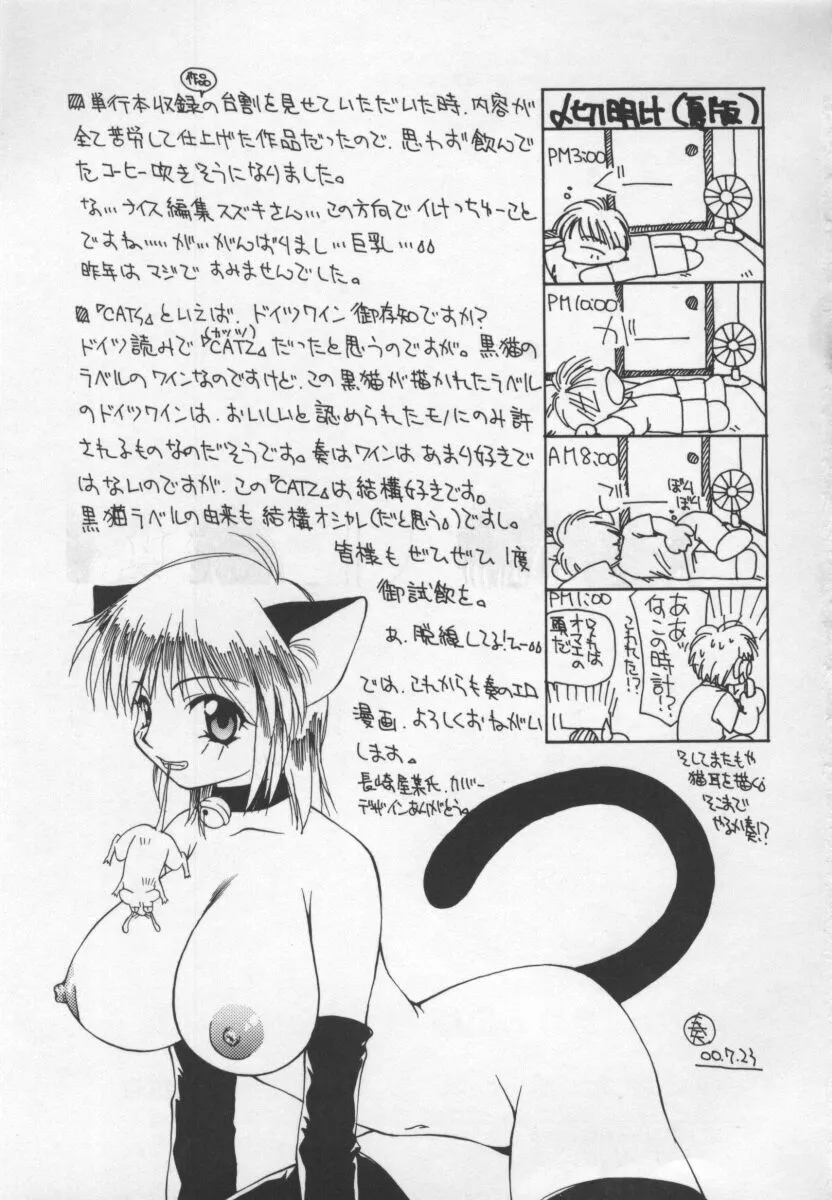 作品
▨単行本収録の台割を見せていただいた時、内容が
全て苦労して仕上げた作品だったので、思わず飲んで
たコーヒー吹きそうになりました。
な…ライス編集スズキさん…この方向でイけっちゅーこと
ですね……が…がんばりまし…巨乳…
昨年はマジですみませんでした。
▨『CATS』といえば、ドイツワイン御存知ですか?
(カッツ)
ドイツ読みで『CATZ』だったと思うのですが。黒猫の
ラベルのワインなのですけど、この黒猫が描かれたラベル
のドイツワインは、おいしいと認められたモノにのみ許
されるものなのだそうです。奏はワインはあまり好きで
はないのですが、この『CATZ』は結構好きです。
黒猫ラベルの由来も結構オシャレ(だと思う。)ですし。
皆様もぜひぜひ1度
御試飲を。
あ、脱線してる!
では、これからも奏のエロ
漫画、よろしくおねがい
します。
長崎屋某氏、カバー
デザインありがとう。
〆切明け(夏版)
PM3:00
PM10:00
ガー
AM8:00
ぼり
ぼり
PM1:00
ああッ
何この時計!?
こわれた!?
オマエの
頭だ
そしてまたもや
猫耳を描く
そこまで
やるか奏!?
奏
00.7.23